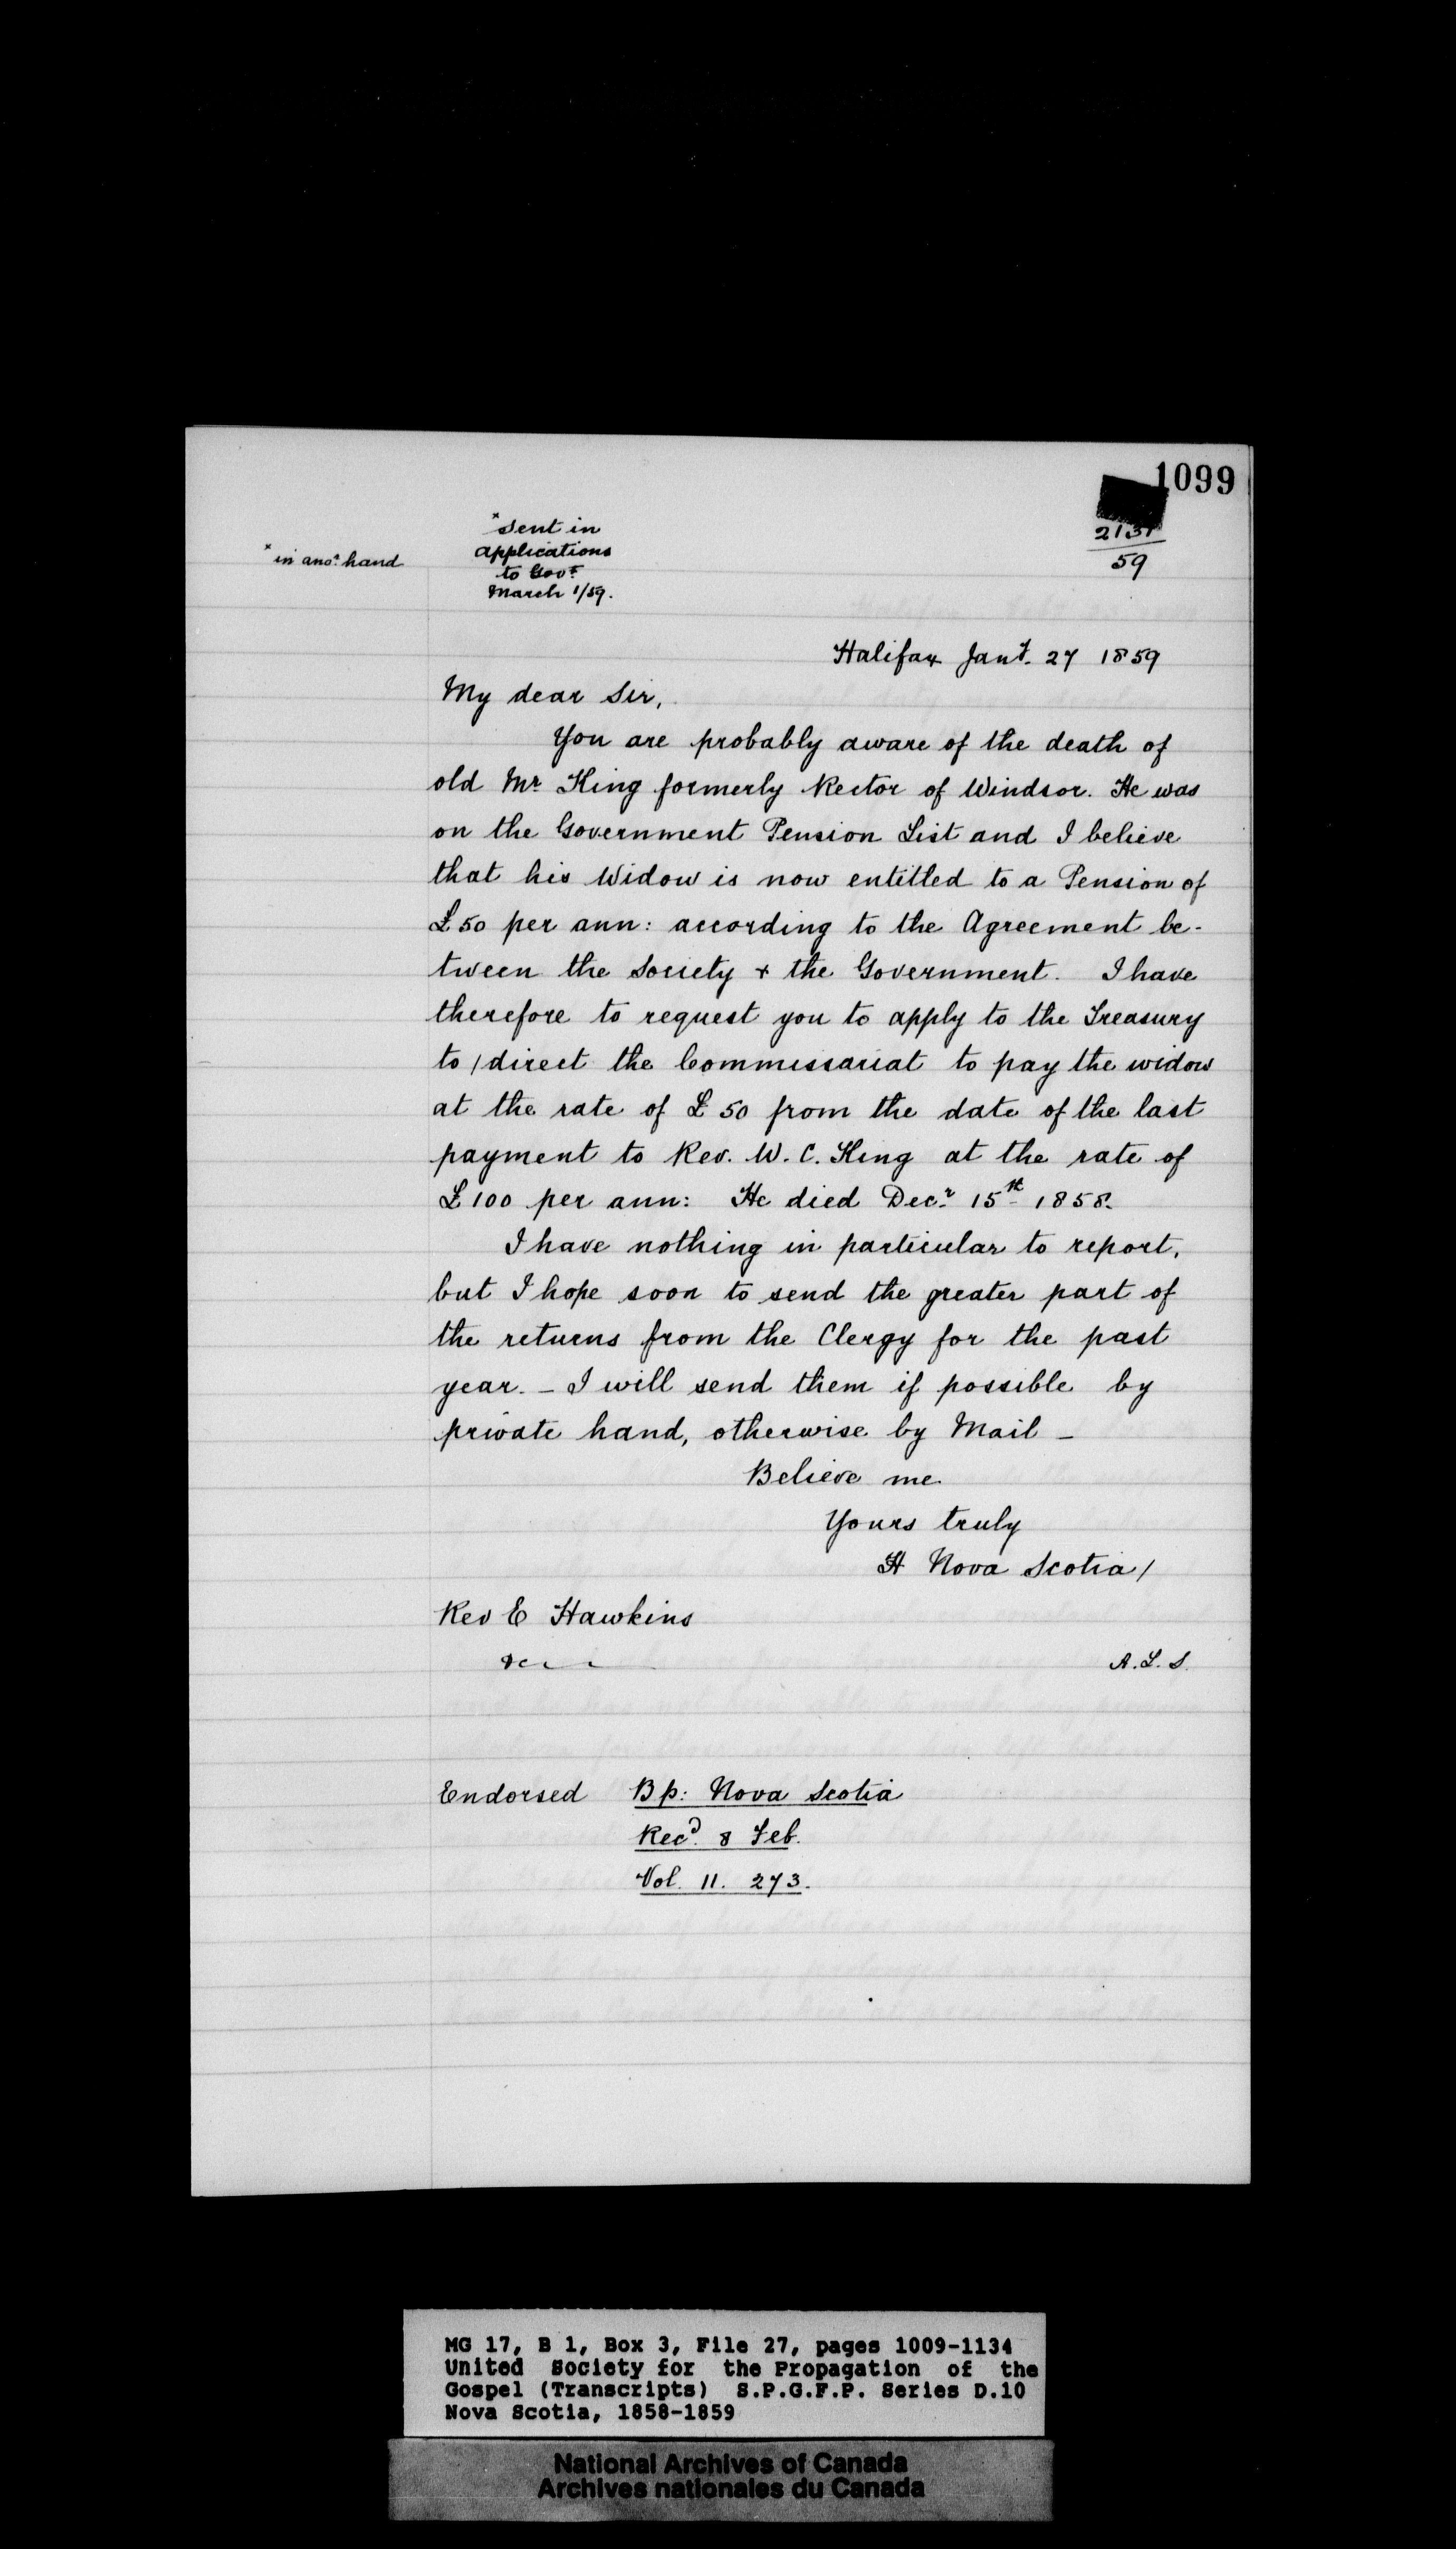 1099
2131
59
*Sent in
applications
to Govt.
March 1/59.
*in anor. hand
Halifax Jany. 27 1859
My dear Sir,
You are probably aware of the death of
old Mr. King formerly Rector of Windsor. He was
on the Government Pension List and I believe
that his Widow is now entitled to a Pension of
£50 per ann: according to the Agreement be-
tween the Society + the Government. I have
therefore to request you to apply to the Treasury
to / direct the Commissariat to pay the widow
at the rate of £50 from the date of the last
payment to Rev. W. C. King at the rate of
£100 per ann: He died Decr. 15th 1858.
I have nothing in particular to report,
but I hope soon to send the greater part of
the returns from the Clergy for the past
year. - I will send them if possible by
private hand, otherwise by Mail -
Believe me
Yours truly
H Nova Scotia /
Rev E Hawkins
&c
A.L.S.
Endorsed Bp: Nova Scotia
Recd. 8 Feb.
Vol. 11. 273.
MG 17, B 1, Box 3, File 27, pages 1009-1134
United Society for the Propagation of the
Gospel (Transcripts) S.P.G.F.P. Series D.10
Nova Scotia, 1858-1859
National Archives of Canada
Archives nationales du Canada